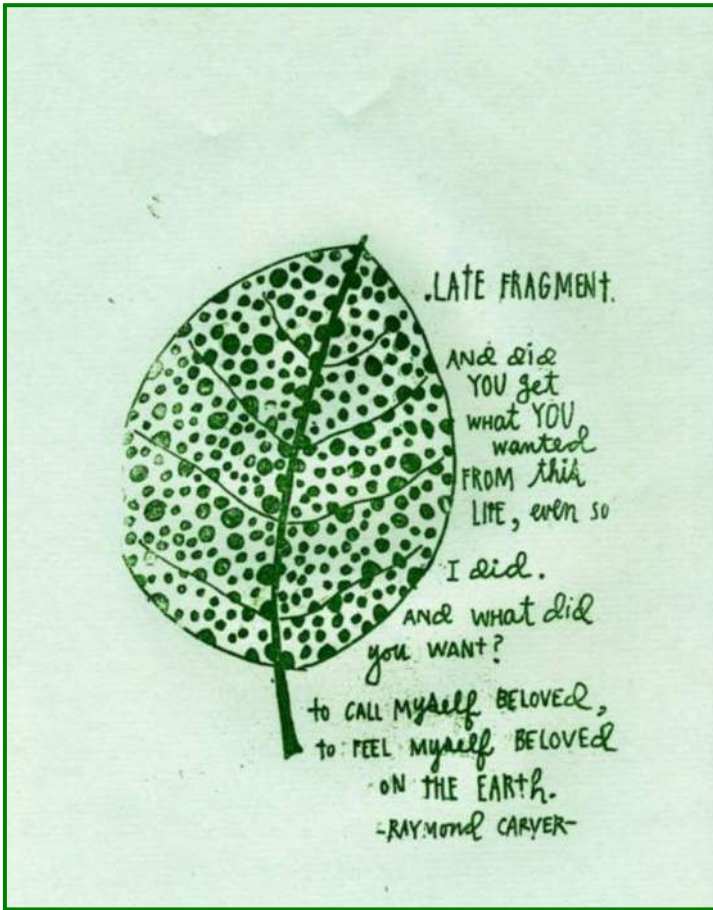 .LATE FRAGMENT.
AND did
YOU get
what YOU
wanted
FROM this
LIFE, even so
I did.
AND WHAT did
you WANT?
to CALL MYself BELOVEd,
to FEEL MYself BELOVEd
ON THE EARth.
-RAYMond CARVER-